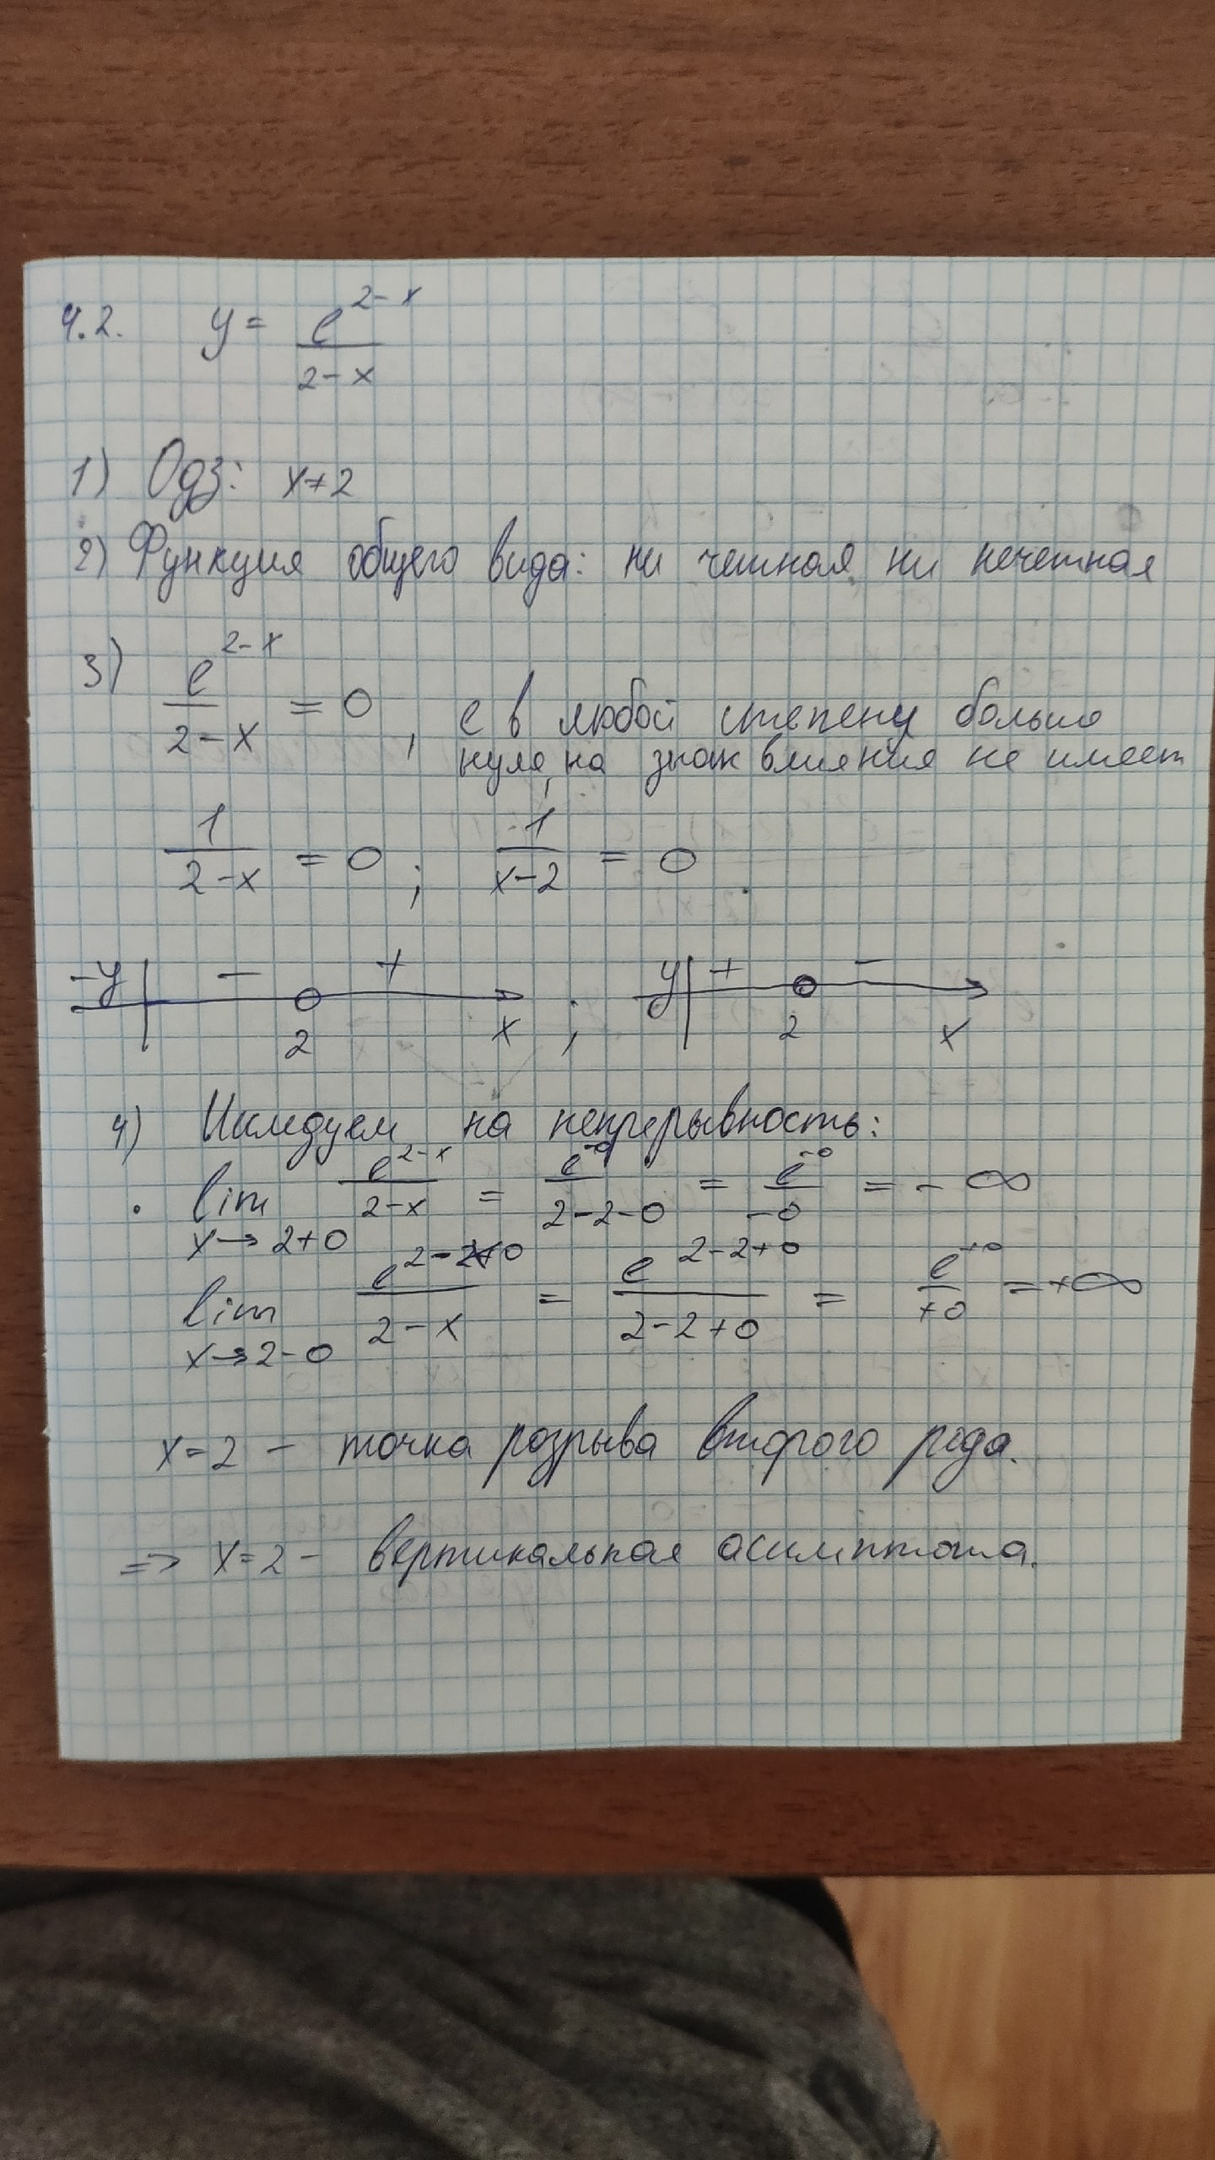 4.2. y = e^{2-x} / (2-x)
1) Одз: x≠2
2) Функция общего вида: ни четная ни нечетная
3) e^{2-x} / (2-x) = 0 , e в любой степени больше
нуля, на знак влияния не имеет
1 / (2-x) = 0 ; 1 / (x-2) = 0
-y − + ; y + −
2 x 2 x
4) Исследуем на непрерывность:
lim_{x→2+0} e^{2-x} / (2-x) = e^{-0} / (2-2-0) = e^{-0} / (-0) = -∞
lim_{x→2-0} e^{2-2+0} / (2-x) = e^{2-2+0} / (2-2+0) = e^{+0} / (+0) = +∞
x=2 - точка розрыва второго рода.
=> x=2 - вертикальная асимптота.